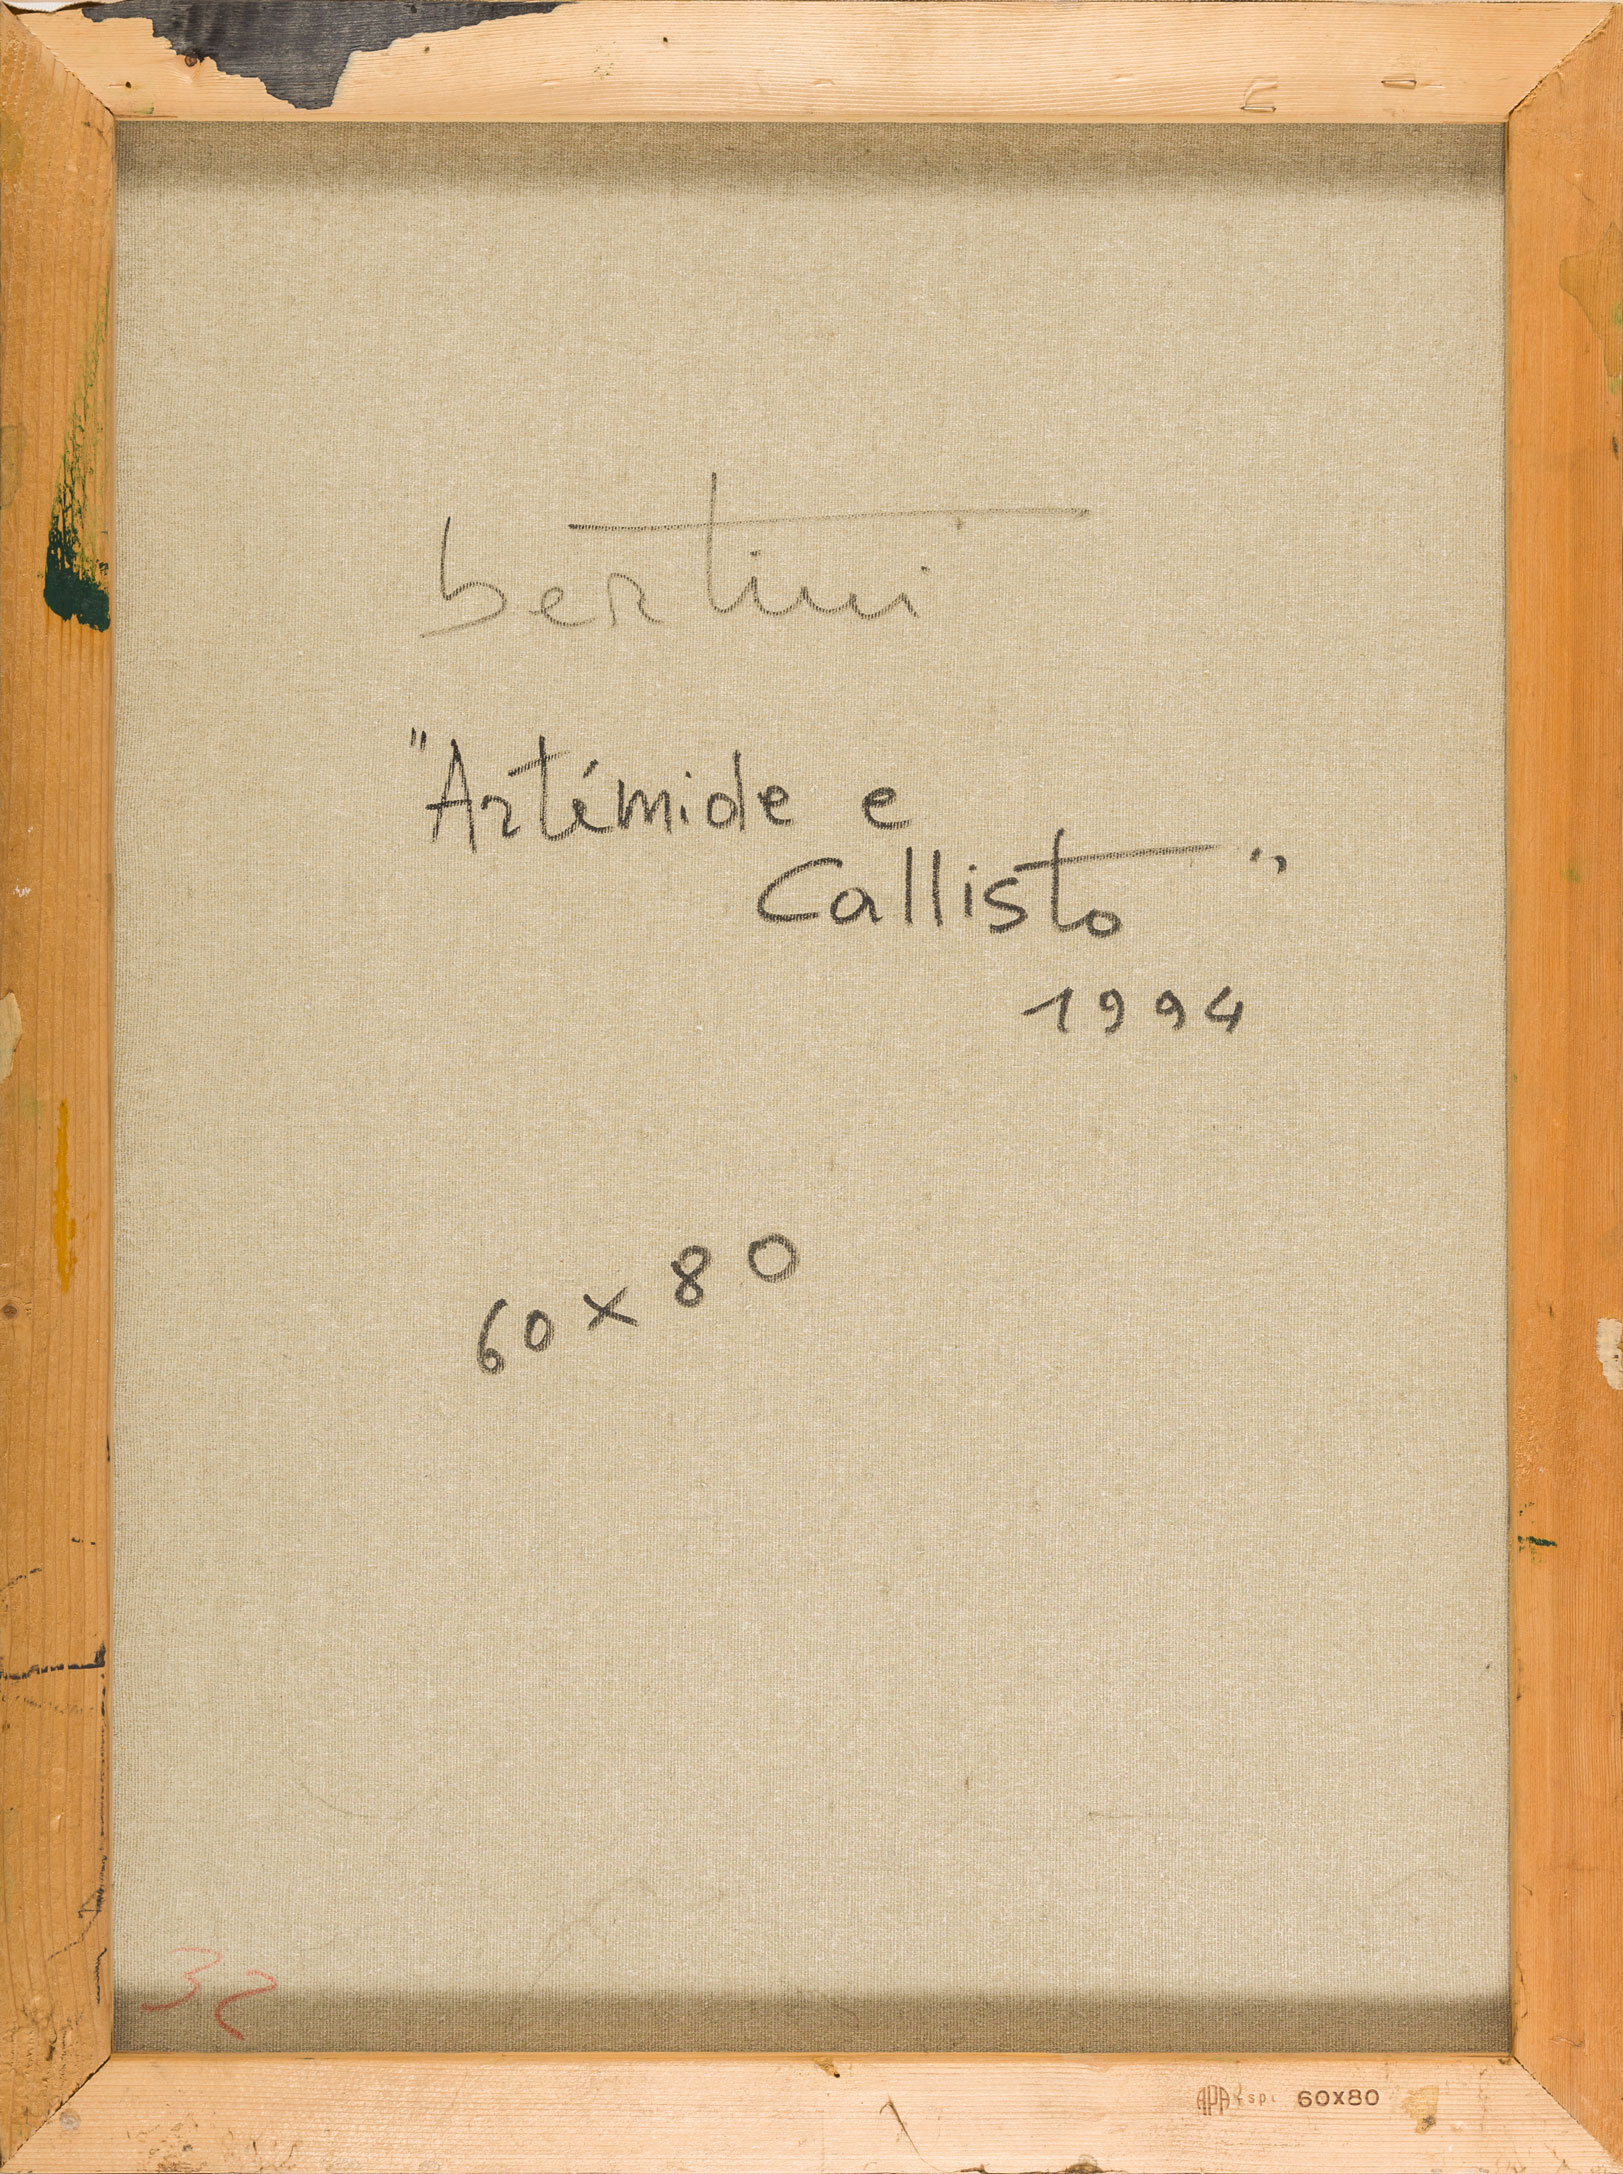 bertini
"Artémide e
Callisto"
1994
60 x 80
32
APA spa 60X80